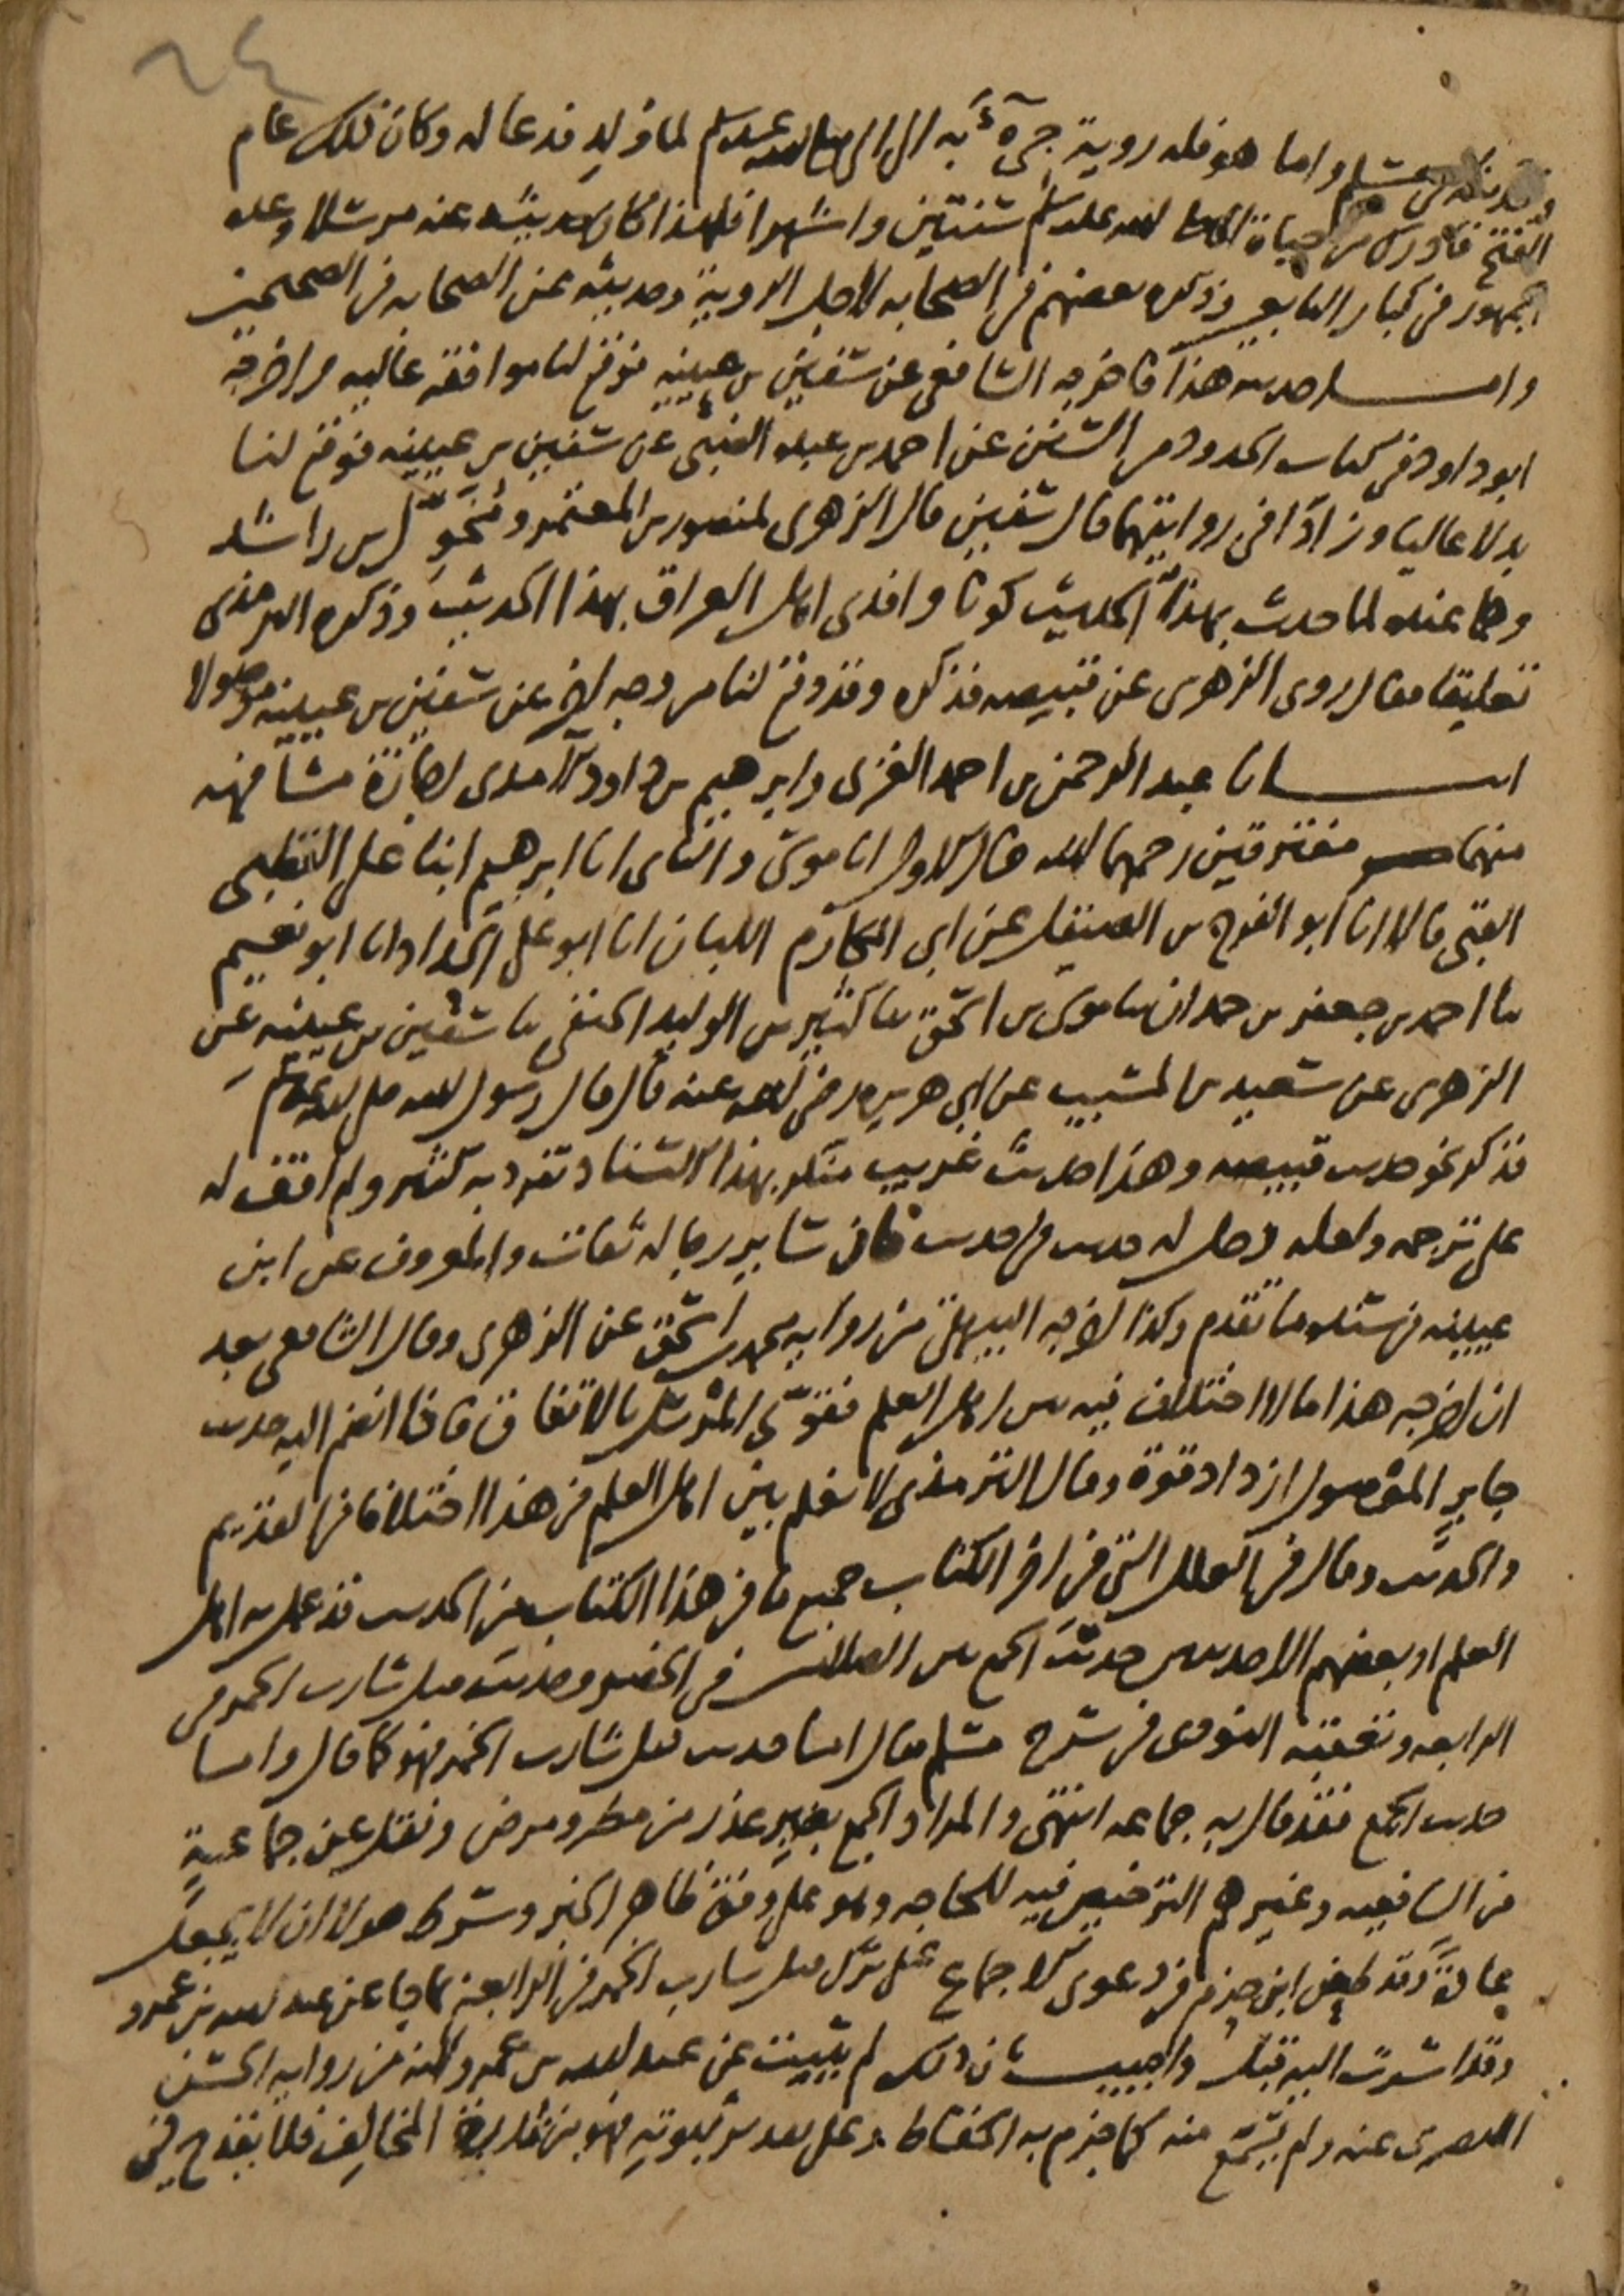 ٦٤
واما هو فله روية جيء به الى النبي صلى الله عليه وسلم لما ولد فدعا له وكان ذلك عام
الفتح فادرك من حياة النبي صلى الله عليه وسلم سنتين واشهرا فلهذا كان حديثه عنه مرسلا وعده
الجمهور في كبار التابعين وذكره بعضهم في الصحابه لاجل الروية وحديثه عن الصحابه في الصحيحين
واما حديثه هذا فاخرجه الشافعي عن سفيان بن عيينه فوقع لنا موافقه عاليه واخرجه
ابو داود في كتاب الحدود من السنن عن احمد بن عبده الضبي عن سفيان بن عيينه فوقع لنا
بدلا عاليا وزادا في روايتهما قال سفيان قال الزهري لمنصور بن المعتمر ومخول بن راشد
وهما عنده لما حدث بهذا الحديث كونا وافدي اهل العراق بهذا الحديث وذكره الترمذي
تعليقا فقال روى الزهري عن قبيصه فذكره وقد وقع لنا من وجه اخر عن سفيان بن عيينه موصولا
انبانا عبد الرحمن بن احمد الغزي وابرهيم بن داود الآمدي اجازة مشافهه
منهما مفترقين رحمهما الله قال الاول انا موسى والثاني انا ابرهيم ابنا علي القطبي
قالا انا ابو الفرج بن الصيقل عن ابي المكارم اللبان انا ابو علي الحداد انا ابو نعيم
ثنا احمد بن جعفر بن حمدان ثنا موسى بن اسحق ثنا كثير بن الوليد الحنفي ثنا سفيان بن عيينه عن
الزهري عن سعيد بن المسيب عن ابي هريره رضي الله عنه قال قال رسول الله صلى الله عليه وسلم
فذكر نحو حديث قبيصه وهذا حديث غريب منكر بهذا الاسناد تفرد به كثير ولم اقف له
على ترجمه ولعله دخل له حديث في حديث فان ساير رجاله ثقات والمعروف عن ابن
عيينه في سنده ما تقدم وكذا اخرجه البيهقي من رواية محمد بن اسحق عن الزهري وقال الشافعي بعد
ان اخرجه هذا ما لا اختلاف فيه بين اهل العلم فتقوى المرسل بالاتفاق فاذا انضم اليه حديث
جابر الموصول ازداد قوة وقال الترمذي لا نعلم بين اهل العلم في هذا اختلافا في القديم
والحديث وقال في العلل التي في اخر الكتاب جميع ما في هذا الكتاب من الحديث قد عمل به اهل
العلم او بعضهم الا حديثين حديث الجمع بين الصلاتين في الحضر وحديث قتل شارب الخمر في
الرابعه وتعقبه النووي في شرح مسلم فقال اما حديث قتل شارب الخمر فهو كما قال واما
حديث الجمع فقد قال به جماعه انتهى والمراد الجمع بغير عذر من مطر ومرض ونقل عن جماعة
من الشافعيه وغيرهم الترخيص فيه للحاجه وهو على وفق ظاهر الخبر وشرط هولا ان لا يجعل
عادة وقد طعن ابن حزم في دعوى الاجماع على ترك قتل شارب الخمر في الرابعة بما جا عن عبد الله بن عمرو
وقد اشرت اليه قبل واجيب بان ذلك لم يثبت عن عبد الله بن عمرو لانه من رواية الحسن
البصري عنه ولم يسمع منه كما جزم به الحفاظ وعلى بعد ثبوته فهو من المخالف فلا يقدح في